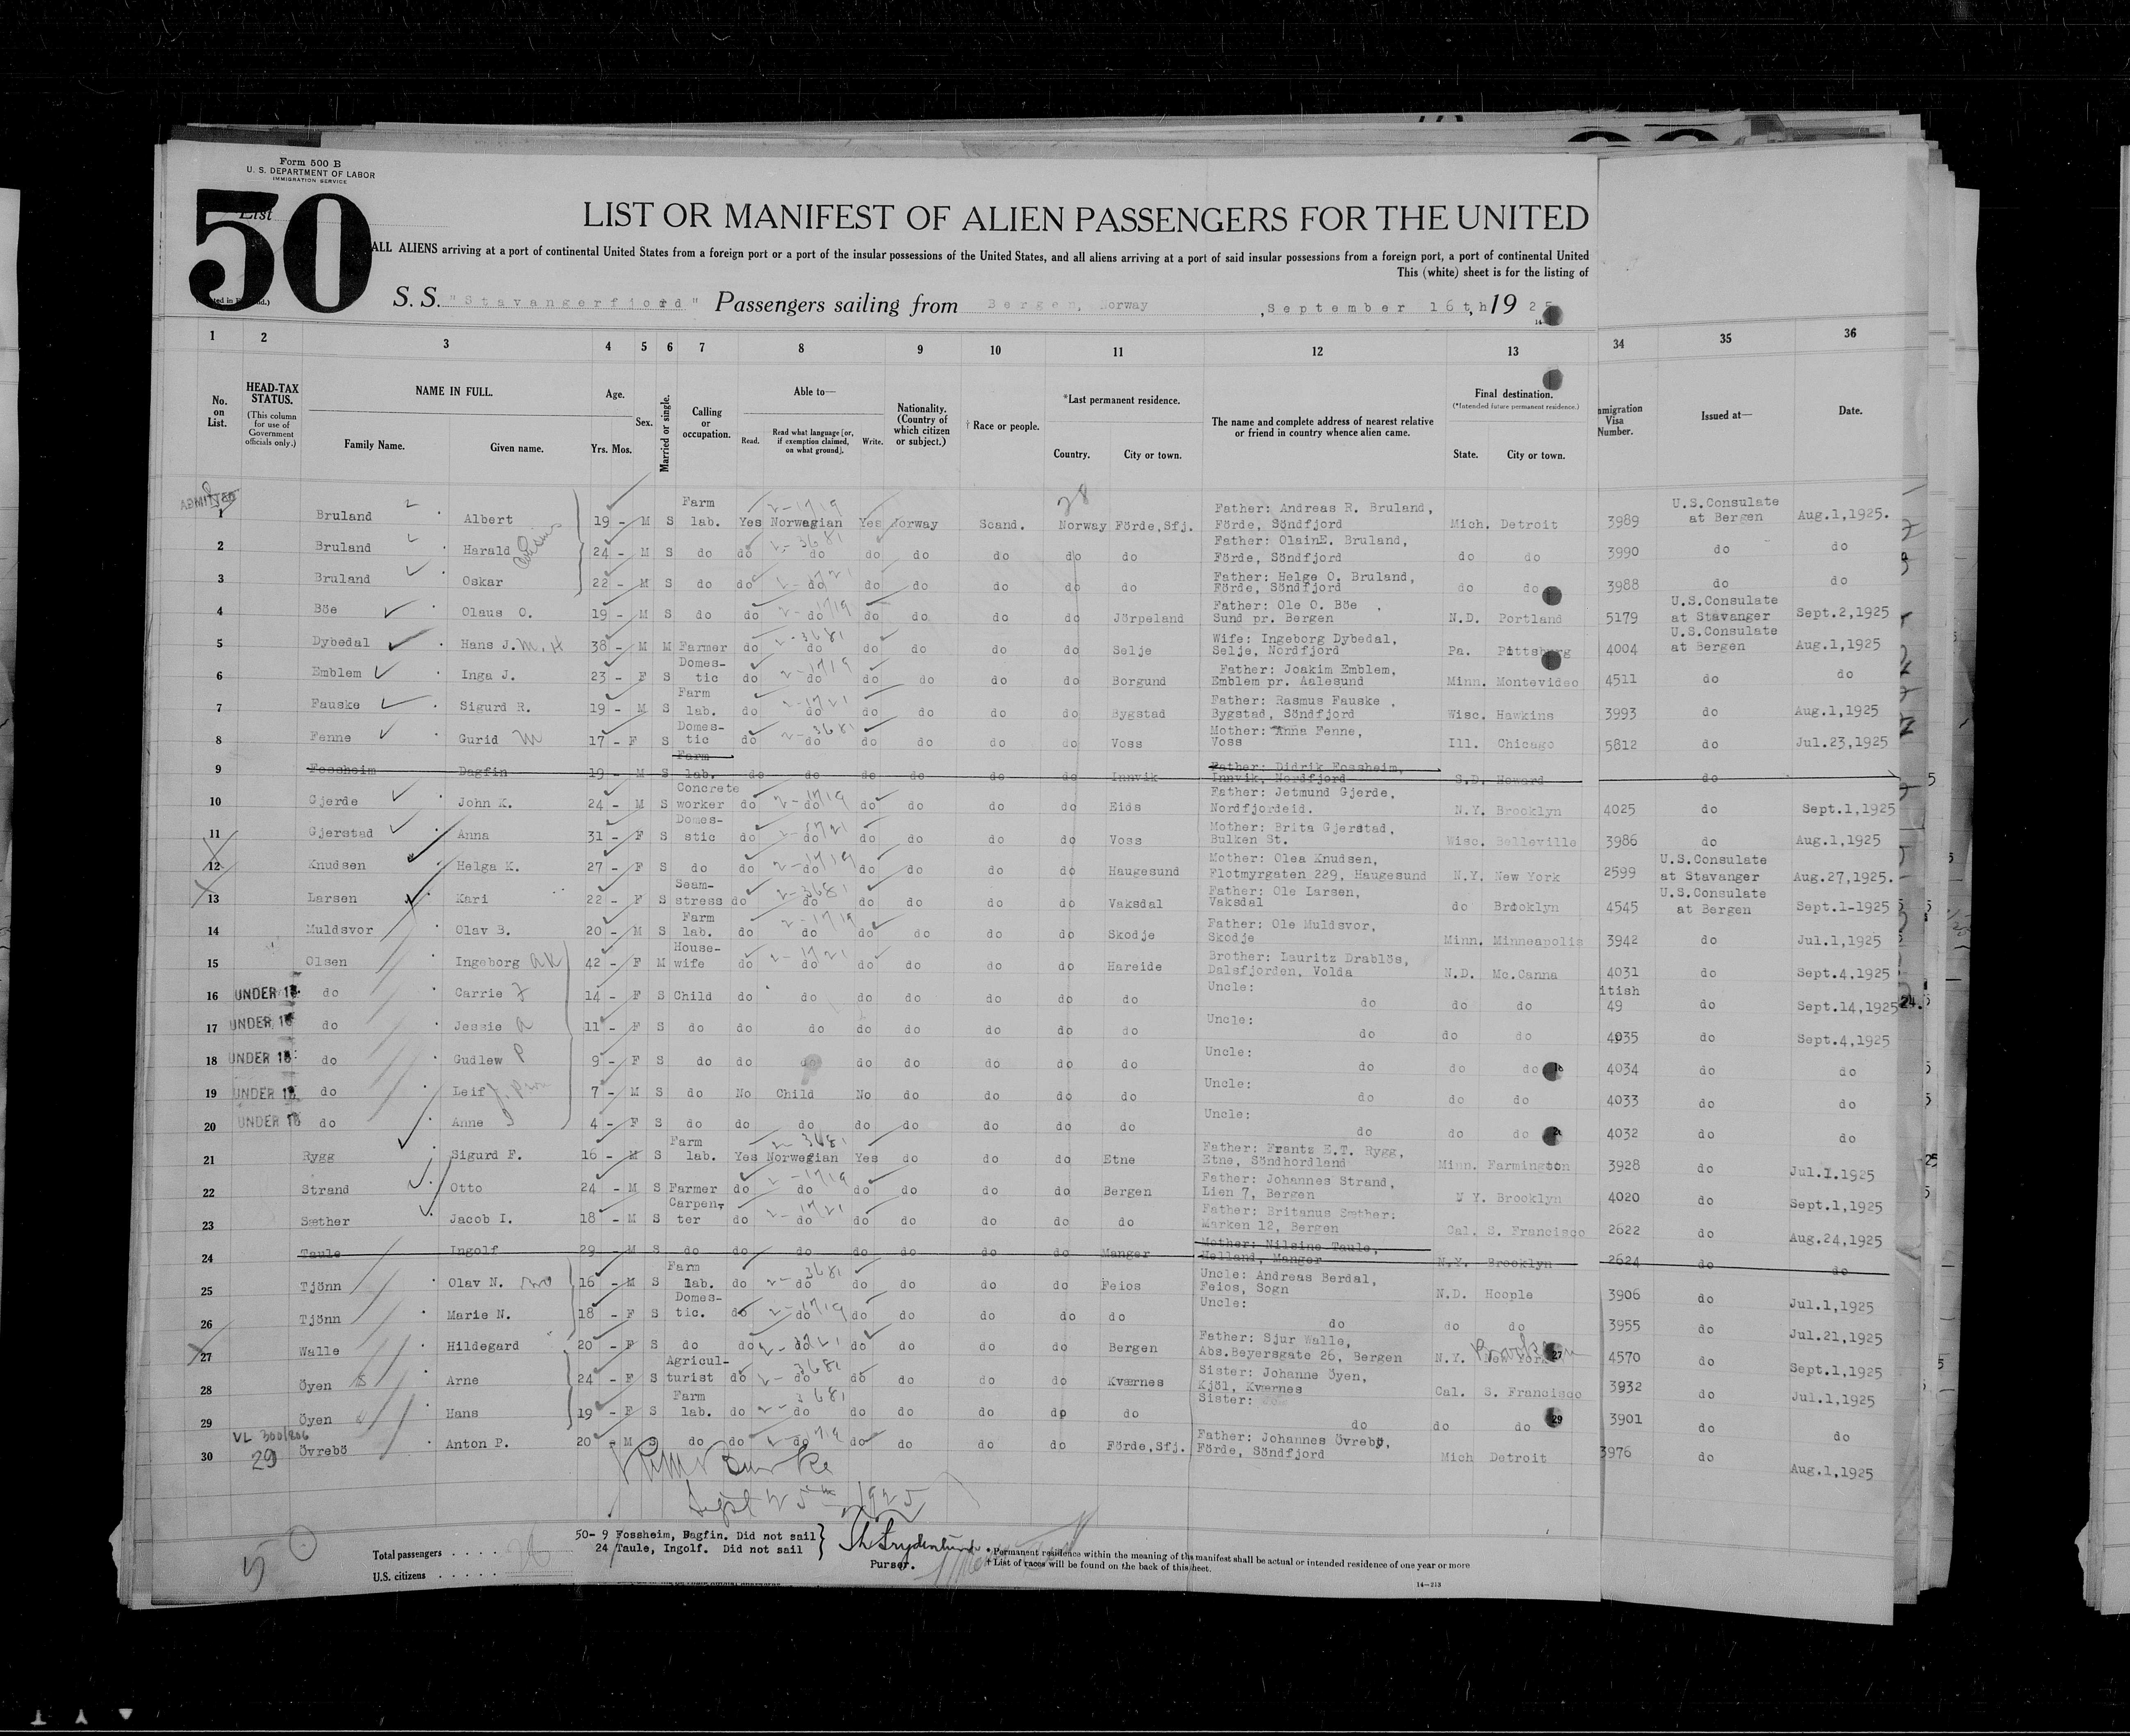 Form 500 B
U. S. DEPARTMENT OF LABOR
IMMIGRATION SERVICE
50
List
LIST OR MANIFEST OF ALIEN PASSENGERS FOR THE UNITED
ALL ALIENS arriving at a port of continental United States from a foreign port or a port of the insular possessions of the United States, and all aliens arriving at a port of said insular possessions from a foreign port, a port of continental United
This (white) sheet is for the listing of
S. S. "Stavangerfjord" Passengers sailing from Bergen, Norway , September 16th, 1925
1 2 3 4 5 6 7 8 9 10 11 12 13 34 35 36
No. on List.
HEAD-TAX STATUS.
(This column for use of Government officials only.)
NAME IN FULL.
Family Name. Given name.
Age.
Yrs. Mos.
Sex.
Married or single.
Calling or occupation.
Able to—
Read. Read what language [or, if exemption claimed, on what ground]. Write.
Nationality. (Country of which citizen or subject.)
† Race or people.
*Last permanent residence.
Country. City or town.
The name and complete address of nearest relative or friend in country whence alien came.
Final destination.
(*Intended future permanent residence.)
State. City or town.
mmigration Visa Number.
Issued at—
Date.
ADMITTED
28
1 Bruland Albert 19 - M S Farm lab. Yes Norwegian Yes Norway Scand. Norway Förde,Sfj. Father: Andreas R. Bruland, Förde, Söndfjord Mich. Detroit 3989 U.S.Consulate at Bergen Aug.1,1925.
2 Bruland Harald Cousins 24 - M S do do 2-3681 do do do do do do Father: OlainE. Bruland, Förde, Söndfjord do do 3990 do do
3 Bruland Oskar 22 - M S do do do do do do do do Father: Helge O. Bruland, Förde, Söndfjord do do 3988 do do
4 Böe Olaus O. 19 - M S do do 2-1719 do do do do do Jörpeland Father: Ole O. Böe , Sund pr. Bergen N.D. Portland 5179 U.S.Consulate at Stavanger Sept.2,1925
5 Dybedal Hans J. M.H 38 - M M Farmer do 2-3681 do do do do do Selje Wife: Ingeborg Dybedal, Selje, Nordfjord Pa. Pittsburg 4004 U.S.Consulate at Bergen Aug.1,1925
6 Emblem Inga J. 23 - F S Domes-tic do 2-1719 do do do do do Borgund Father: Joakim Emblem, Emblem pr. Aalesund Minn. Montevideo 4511 do do
7 Fauske Sigurd R. 19 - M S Farm lab. do 2-1721 do do do do do Bygstad Father: Rasmus Fauske , Bygstad, Söndfjord Wisc. Hawkins 3993 do Aug.1,1925
8 Fenne Gurid M 17 - F S Domes-tic do 2-3681 do do do do do Voss Mother: Anna Fenne, Voss Ill. Chicago 5812 do Jul.23,1925
9 Fossheim Dagfin 19 - M S Farm lab. do do do do do do Innvik Father: Didrik Fossheim, Innvik, Nordfjord S.D. Howard do
10 Gjerde John K. 24 - M S Concrete worker do 2-1719 do do do do do Eids Father: Jetmund Gjerde, Nordfjordeid. N.Y. Brooklyn 4025 do Sept.1,1925
11 Gjerstad Anna 31 - F S Domes-stic do 2-1721 do do do do do Voss Mother: Brita Gjerstad, Bulken St. Wisc. Belleville 3986 do Aug.1,1925
12 Knudsen Helga K. 27 - F S do do 2-1719 do do do do do Haugesund Mother: Olea Knudsen, Flotmyrgaten 229, Haugesund N.Y. New York 2599 U.S.Consulate at Stavanger Aug.27,1925.
13 Larsen Kari 22 - F S Seam-stress do 2-3681 do do do do do Vaksdal Father: Ole Larsen, Vaksdal do Brooklyn 4545 U.S.Consulate at Bergen Sept.1-1925
14 Muldsvor Olav B. 20 - M S Farm lab. do 2-1719 do do do do do Skodje Father: Ole Muldsvor, Skodje Minn. Minneapolis 3942 do Jul.1,1925
15 Olsen Ingeborg 42 - F M House-wife do 2-1721 do do do do do Hareide Brother: Lauritz Drablös, Dalsfjorden, Volda N.D. Mc.Canna 4031 do Sept.4,1925
16 UNDER 16 do Carrie 14 - F S Child do do do do do do do Uncle: do do do itish 49 do Sept.14,1925 24.
17 UNDER 16 do Jessie 11 - F S do do do do do do do do Uncle: do do do 4035 do Sept.4,1925
18 UNDER 16 do Gudlew P 9 - F S do do do do do do do do Uncle: do do do 4034 do do
19 UNDER 16 do Leif 7 - M S do No Child No do do do do Uncle: do do do 4033 do do
20 UNDER 16 do Anne 4 - F S do do do do do do do do Uncle: do do do 4032 do do
21 Rygg Sigurd F. 16 - M S Farm lab. Yes Norwegian Yes do do do Etne Father: Frantz E.T. Rygg, Etne, Söndhordland Minn. Farmington 3928 do Jul.1.1925
22 Strand Otto 24 - M S Farmer do 2-1719 do do do do do Bergen Father: Johannes Strand, Lien 7, Bergen N Y. Brooklyn 4020 do Sept.1,1925
23 Sæther Jacob I. 18 - M S Carpen-ter do 2-1721 do do do do do do Father: Britanus Sæther. Marken 12, Bergen Cal. S. Francisco 2622 do Aug.24,1925
24 Taule Ingolf 29 - M S do do do do do do do Manger Mother: Nilsine Taule, Helland, Manger N.Y. Brooklyn 2624 do do
25 Tjönn Olav N. 16 - M S Farm lab. do 2-3681 do do do do do Feios Uncle: Andreas Berdal, Feios, Sogn N.D. Hoople 3906 do Jul.1,1925
26 Tjönn Marie N. 18 - F S Domes-tic. do 2-1719 do do do do do do Uncle: do do do 3955 do Jul.21,1925
27 Walle Hildegard 20 - F S do do do do do do do Bergen Father: Sjur Walle, Abs.Beyersgate 26, Bergen N.Y. New York Brooklyn 27 4570 do Sept.1,1925
28 Öyen Arne 24 - F S Agricul-turist do 2-3681 do do do do do Kværnes Sister: Johanne Öyen, Kjöl, Kværnes Cal. S. Francisco 3932 do Jul.1,1925
29 Öyen Hans 19 - F S Farm lab. do 2-3681 do do do do do do Sister: do do do 29 3901 do do
VL 300/806
29
30 Övrebö Anton P. 20 - M S do do 2-1719 do do do do do Förde,Sfj. Father: Johannes Övrebö, Förde, Söndfjord Mich Detroit 3976 do Aug.1,1925
Burke
Sept 25th 1925
50- 9 Fossheim, Dagfin. Did not sail
24 Taule, Ingolf. Did not sail
Purser.
Total passengers . . . .
U.S. citizens . . . . .
* Permanent residence within the meaning of this manifest shall be actual or intended residence of one year or more
† List of races will be found on the back of this sheet.
14—213